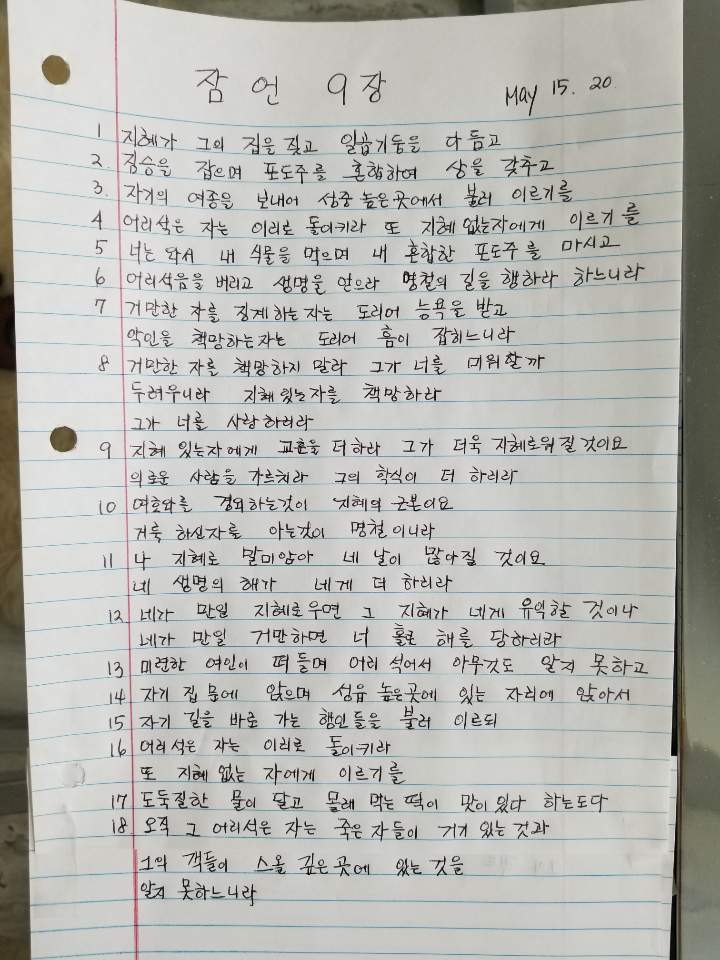 잠언 9장
May 15. 20.
1 지혜가 그의 집을 짖고 일곱기둥을 다듬고
2 짐승을 잡으며 포도주를 혼합하여 상을 갖추고
3. 자기의 여종을 보내어 성중 높은곳에서 불러 이르기를
4 어리석은 자는 이리로 돌이키라 또 지혜없는자에게 이르기를
5 너는 와서 내 식물을 먹으며 내 혼합한 포도주를 마시고
6 어리석음을 버리고 생명을 얻으라 명철의 길을 행하라 하느니라
7 거만한 자를 징계하는자는 도리어 능욕을 받고
악인을 책망하는자는 도리어 흠이 잡히느니라
8 거만한 자를 책망하지 말라 그가 너를 미워할까
두려우니라 지혜있는자를 책망하라
그가 너를 사랑하리라
9 지혜 있는자에게 교훈을 더하라 그가 더욱 지혜로워질것이요
의로운 사람을 가르쳐라 그의 학식이 더 하리라
10 여호와를 경외하는것이 지혜의 근본이요
거룩 하신자를 아는것이 명철이니라
11 나 지혜로 말미암아 네 날이 많아질 것이요
네 생명의 해가 네게 더 하리라
12 네가 만일 지혜로우면 그 지혜가 네게 유익할 것이나
네가 만일 거만하면 너 홀로 해를 당하리라
13 미련한 여인이 떠들며 어리석어서 아무것도 알지 못하고
14 자기 집 문에 앉으며 성읍 높은곳에 있는 자리에 앉아서
15 자기 길을 바로 가는 행인들을 불러 이르되
16 어리석은 자는 이리로 돌이키라
또 지혜 없는 자에게 이르기를
17 도둑질한 물이 달고 몰래 먹는 떡이 맛이있다 하는도다
18 오직 그 어리석은 자는 죽은 자들이 거기 있는것과
그의 객들이 스올 깊은곳에 있는것을
알지 못하느니라